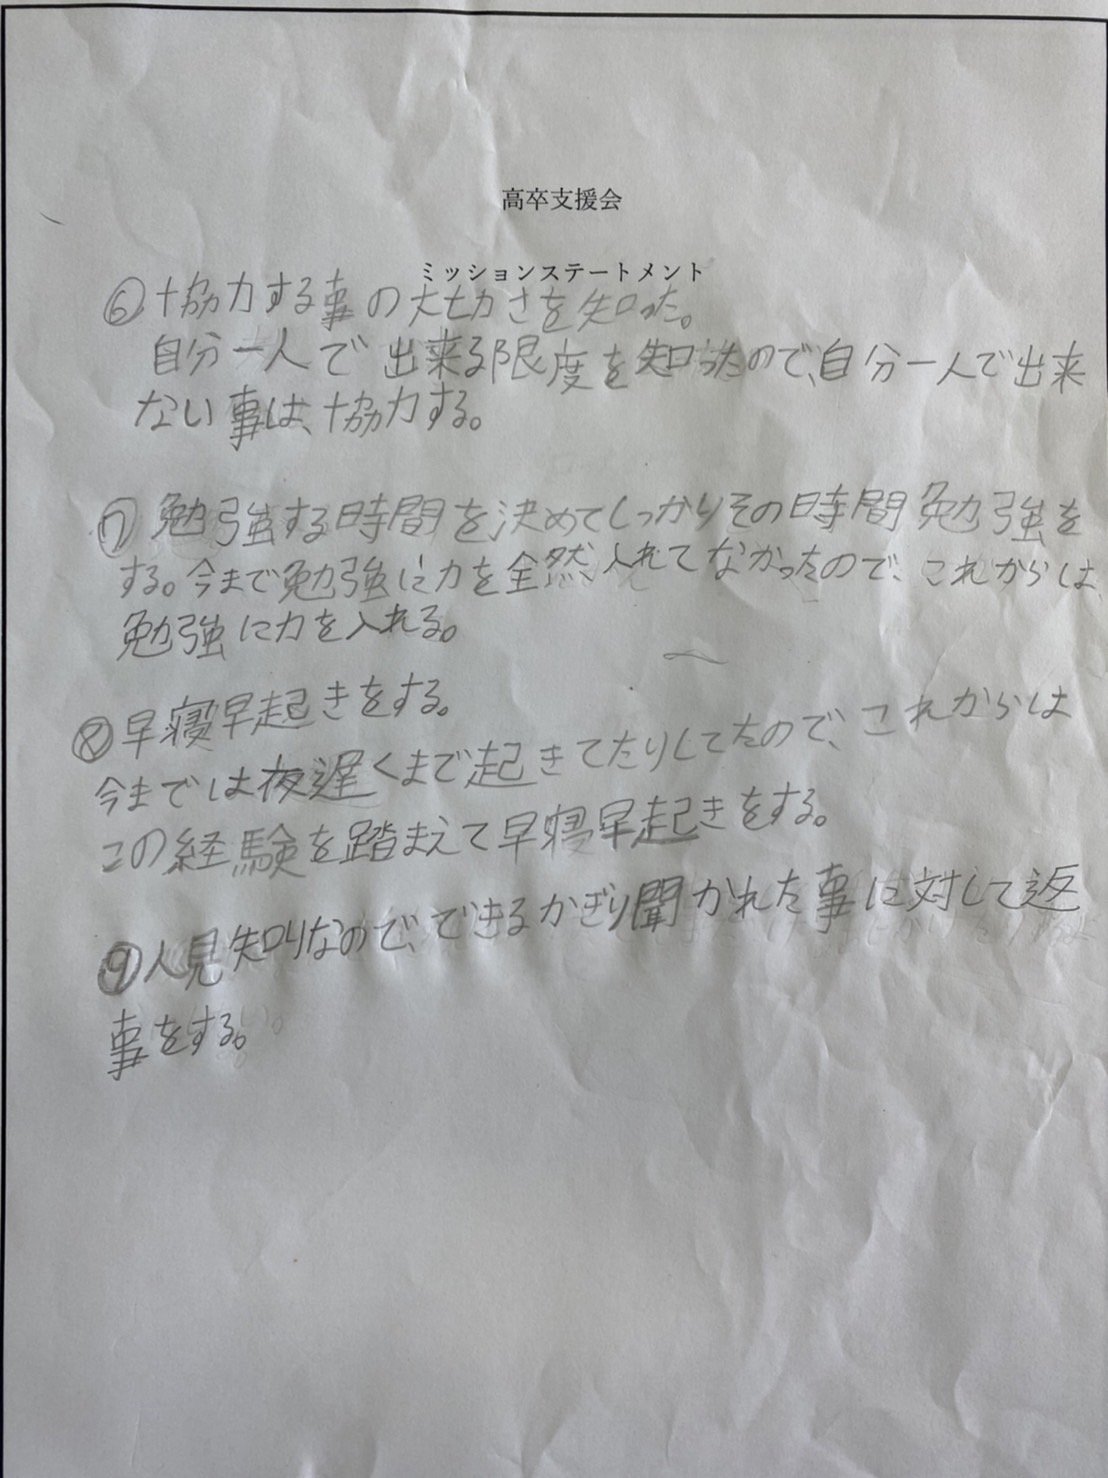 高卒支援会
ミッションステートメント
⑥協力する事の大切さを知った。
自分一人で出来る限度を知ったので、自分一人で出来
ない事は、協力する。
⑦勉強する時間を決めてしっかりその時間勉強を
する。今まで勉強に力を全然入れてなかったので、これからは
勉強に力を入れる。
⑧早寝早起きをする。
今までは夜遅くまで起きてたりしてたので、これからは
この経験を踏まえて早寝早起きをする。
⑨人見知りなので、できるかぎり聞かれた事に対して返
事をする。